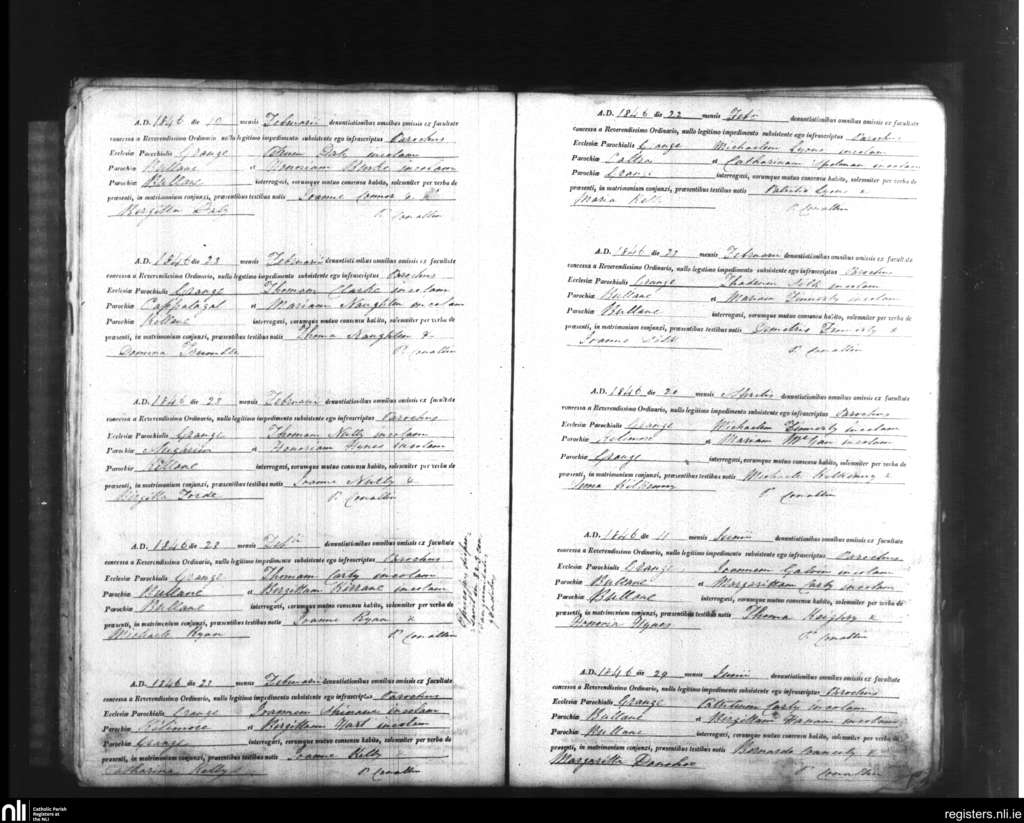 A.D. 1846 die 10 mensis Februarii denuntiationibus omnibus omissis ex facultate
concessa a Reverendissimo Ordinario, nullo legitimo impedimento subsistente ego infrascriptus Parochus
Ecclesiæ Parochialis Grange incolam
Parochiæ Bullane et Honoriam Burke incolam
Parochiæ Bullane interrogavi, eorumque mutuo consensu habito, solemniter per verba de
præsenti, in matrimonium conjunxi, præsentibus testibus notis Joanne Connor &
Bergitta
P. Conattin
A.D. 1846 die 23 mensis Februarii denuntiationibus omnibus omissis ex facultate
concessa a Reverendissimo Ordinario, nullo legitimo impedimento subsistente ego infrascriptus Parochus
Ecclesiæ Parochialis Grange Thomam Clarke incolam
Parochiæ Cappatagal et Mariam Naughton incolam
Parochiæ Killane interrogavi, eorumque mutuo consensu habito, solemniter per verba de
præsenti, in matrimonium conjunxi, præsentibus testibus notis Thoma Naughton &
P. Conattin
A.D. 1846 die 23 mensis Februarii denuntiationibus omnibus omissis ex facultate
concessa a Reverendissimo Ordinario, nullo legitimo impedimento subsistente ego infrascriptus Parochus
Ecclesiæ Parochialis Grange Thomam Nully incolam
Parochiæ et Honoriam Hynes incolam
Parochiæ Killane interrogavi, eorumque mutuo consensu habito, solemniter per verba de
præsenti, in matrimonium conjunxi, præsentibus testibus notis Joanne Nully &
Birgitta Forde
P. Conattin
A.D. 1846 die 23 mensis Feb denuntiationibus omnibus omissis ex facultate
concessa a Reverendissimo Ordinario, nullo legitimo impedimento subsistente ego infrascriptus Parochus
Ecclesiæ Parochialis Grange Thomam Carty incolam
Parochiæ Bullane et Bergittam Kirrane incolam
Parochiæ Bullane interrogavi, eorumque mutuo consensu habito, solemniter per verba de
præsenti, in matrimonium conjunxi, præsentibus testibus notis Joanne Ryan &
Michaele Ryan
P. Conattin
A.D. 1846 die 23 mensis Februarii denuntiationibus omnibus omissis ex facultate
concessa a Reverendissimo Ordinario, nullo legitimo impedimento subsistente ego infrascriptus Parochus
Ecclesiæ Parochialis Grange Joannem incolam
Parochiæ Kilimore et Bergittam Hart incolam
Parochiæ Grange interrogavi, eorumque mutuo consensu habito, solemniter per verba de
præsenti, in matrimonium conjunxi, præsentibus testibus notis Joanne Kelly
Catharina Kelly
P. Conattin
A.D. 1846 die 22 mensis Feb denuntiationibus omnibus omissis ex facultate
concessa a Reverendissimo Ordinario, nullo legitimo impedimento subsistente ego infrascriptus Parochus
Ecclesiæ Parochialis Grange Michaelem Lyons incolam
Parochiæ et Catharinam Spelman incolam
Parochiæ Grange interrogavi, eorumque mutuo consensu habito, solemniter per verba de
præsenti, in matrimonium conjunxi, præsentibus testibus notis Patritio Lyons &
Maria Kelly
P. Conattin
A.D. 1846 die 23 mensis Februarii denuntiationibus omnibus omissis ex facultate
concessa a Reverendissimo Ordinario, nullo legitimo impedimento subsistente ego infrascriptus Parochus
Ecclesiæ Parochialis Grange Thadeum incolam
Parochiæ Bullane et Mariam incolam
Parochiæ Bullane interrogavi, eorumque mutuo consensu habito, solemniter per verba de
præsenti, in matrimonium conjunxi, præsentibus testibus notis &
Joanne
P. Conattin
A.D. 1846 die 20 mensis Aprilis denuntiationibus omnibus omissis ex facultate
concessa a Reverendissimo Ordinario, nullo legitimo impedimento subsistente ego infrascriptus Parochus
Ecclesiæ Parochialis Grange Michaelem incolam
Parochiæ Kilimore et Mariam incolam
Parochiæ Grange interrogavi, eorumque mutuo consensu habito, solemniter per verba de
præsenti, in matrimonium conjunxi, præsentibus testibus notis Michaele Kilkenny &
Anna Kilkenny
P. Conattin
A.D. 1846 die 11 mensis Junii denuntiationibus omnibus omissis ex facultate
concessa a Reverendissimo Ordinario, nullo legitimo impedimento subsistente ego infrascriptus Parochus
Ecclesiæ Parochialis Grange Joannem Galvin incolam
Parochiæ Bullane et Margarittam Carty incolam
Parochiæ Bullane interrogavi, eorumque mutuo consensu habito, solemniter per verba de
præsenti, in matrimonium conjunxi, præsentibus testibus notis Thoma &
Honoria Hynes
P. Conattin
A.D. 1846 die 29 mensis Junii denuntiationibus omnibus omissis ex facultate
concessa a Reverendissimo Ordinario, nullo legitimo impedimento subsistente ego infrascriptus Parochus
Ecclesiæ Parochialis Grange Patritium Carty incolam
Parochiæ Bullane et Bergittam incolam
Parochiæ Bullane interrogavi, eorumque mutuo consensu habito, solemniter per verba de
præsenti, in matrimonium conjunxi, præsentibus testibus notis Bernardo &
Margaritta Donohoe
P. Conattin
nli Catholic Parish
Registers at
the NLI
registers.nli.ie